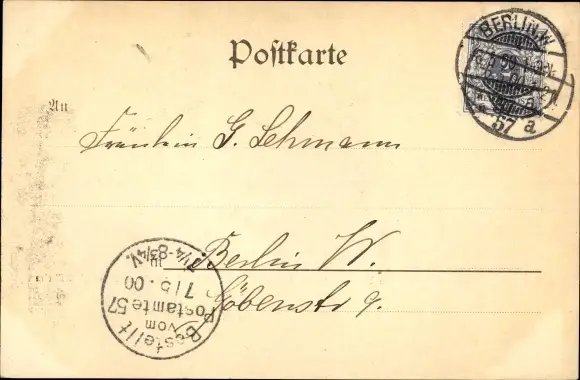 Postkarte
BERLIN.W.
57 a
An
Fräulein G. Lehmann
in Berlin W.
Göbenstr 9.
Bestellt
vom
Postamte 57
7/5.00
1/4-8 3/4 V.